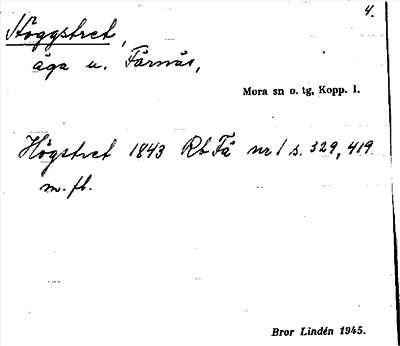 4.
Höggstret,
äga u. Färnäs,
Mora sn o. tg, Kopp. l.
Högstret 1843 Rb Fä nr 1 s. 329, 419
m. fl.
Bror Lindén 1945.